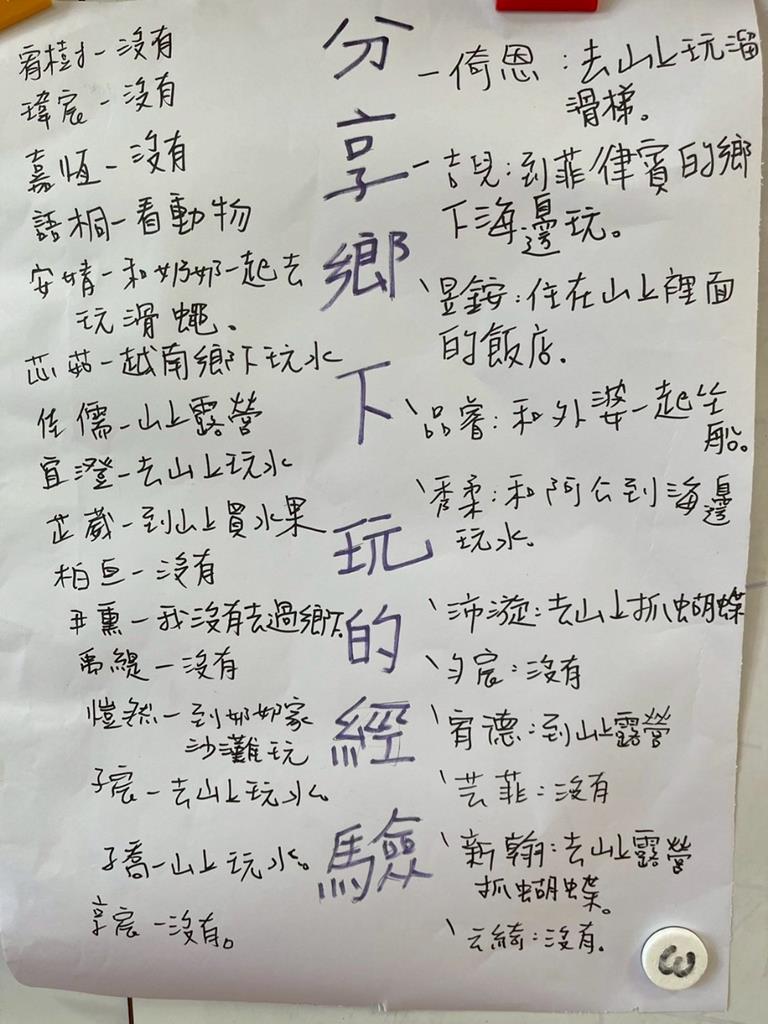 分享鄉下玩的經驗
宥樹-沒有
瑋宸-沒有
嘉恆-沒有
語桐-看動物
安婧-和奶奶一起去
玩滑蠅。
芯茹-越南鄉下玩水
佳儒-山上露營
宜澄-去山上玩水
芷葳-到山上買水果
柏亘-沒有
尹熏-我沒有去過鄉下
禹緹-沒有
愷然-到奶奶家
沙灘玩
子宸-去山上玩水。
子喬-山上玩水。
享宸-沒有。
-倚恩:去山上玩溜
滑梯。
-吉兒:到菲律賓的鄉
下海邊玩。
、昱銨:住在山上裡面
的飯店.
、品睿:和外婆一起坐
船。
、喬柔:和阿公到海邊
玩水.
、沛漩:去山上抓蝴蝶
、勻宸:沒有
、宥德:到山上露營
、芸菲:沒有
、新翰:去山上露營
抓蝴蝶。
、云綺:沒有.
3